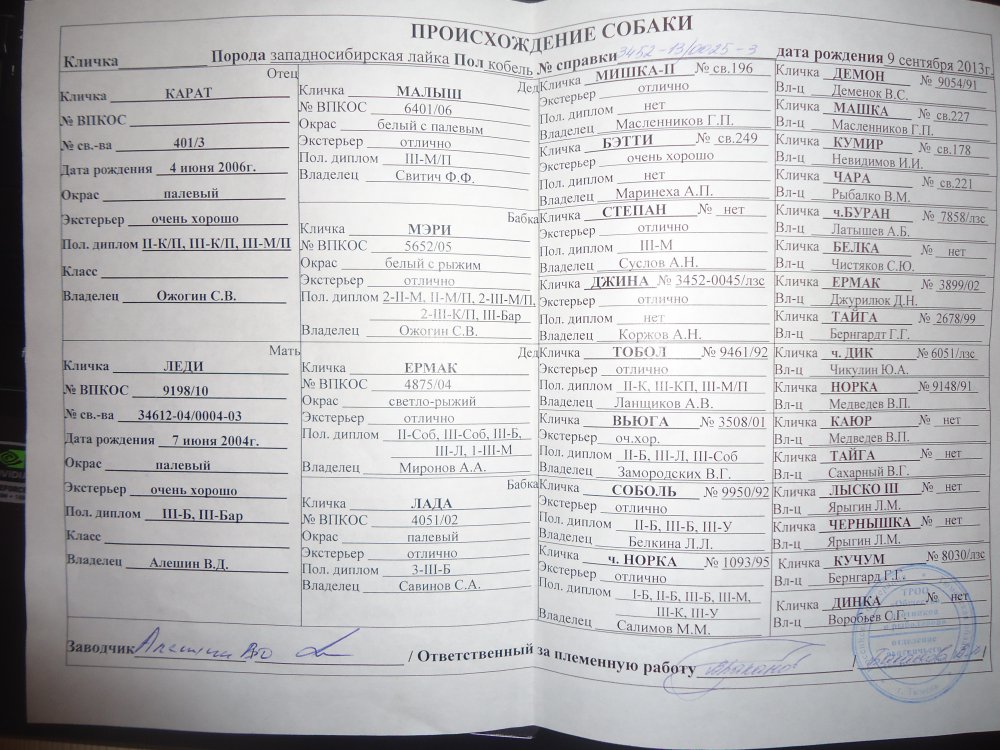 ПРОИСХОЖДЕНИЕ СОБАКИ
Кличка Порода западносибирская лайка Пол кобель № справки 3452-13/0025-3 дата рождения 9 сентября 2013г.
Отец
Кличка КАРАТ
№ ВПКОС
№ св.-ва 401/3
Дата рождения 4 июня 2006г.
Окрас палевый
Экстерьер очень хорошо
Пол. диплом II-К/П, III-К/П, III-М/П
Класс
Владелец Ожогин С.В.
Мать
Кличка ЛЕДИ
№ ВПКОС 9198/10
№ св.-ва 34612-04/0004-03
Дата рождения 7 июня 2004г.
Окрас палевый
Экстерьер очень хорошо
Пол. диплом III-Б, III-Бар
Класс
Владелец Алешин В.Д.
Дед
Кличка МАЛЫШ
№ ВПКОС 6401/06
Окрас белый с палевым
Экстерьер отлично
Пол. диплом III-М/П
Владелец Свитич Ф.Ф.
Бабка
Кличка МЭРИ
№ ВПКОС 5652/05
Окрас белый с рыжим
Экстерьер отлично
Пол. диплом 2-II-М, II-М/П, 2-III-М/П,
2-III-К/П, III-Бар
Владелец Ожогин С.В.
Дед
Кличка ЕРМАК
№ ВПКОС 4875/04
Окрас светло-рыжий
Экстерьер отлично
Пол. диплом II-Соб, III-Соб, III-Б,
III-Л, 1-III-М
Владелец Миронов А.А.
Бабка
Кличка ЛАДА
№ ВПКОС 4051/02
Окрас палевый
Экстерьер отлично
Пол. диплом 3-III-Б
Владелец Савинов С.А.
Кличка МИШКА-II № св.196
Экстерьер отлично
Пол. диплом нет
Владелец Масленников Г.П.
Кличка БЭТТИ № св.249
Экстерьер очень хорошо
Пол. диплом нет
Владелец Маринеха А.П.
Кличка СТЕПАН № нет
Экстерьер отлично
Пол. диплом III-М
Владелец Суслов А.Н.
Кличка ДЖИНА № 3452-0045/лзс
Экстерьер отлично
Пол. диплом нет
Владелец Коржов А.Н.
Кличка ТОБОЛ № 9461/92
Экстерьер отлично
Пол. диплом II-К, III-КП, III-М/П
Владелец Ланщиков А.В.
Кличка ВЬЮГА № 3508/01
Экстерьер оч.хор.
Пол. диплом II-Б, III-Л, III-Соб
Владелец Замородских В.Г.
Кличка СОБОЛЬ № 9950/92
Экстерьер отлично
Пол. диплом II-Б, III-Б, III-У
Владелец Белкина Л.Л.
Кличка ч. НОРКА № 1093/95
Экстерьер отлично
Пол. диплом I-Б, II-Б, III-Б, III-М,
III-К, III-У
Владелец Салимов М.М.
Кличка ДЕМОН № 9054/91
Вл-ц Деменок В.С.
Кличка МАШКА № св.227
Вл-ц Масленников Г.П.
Кличка КУМИР № св.178
Вл-ц Невидимов И.И.
Кличка ЧАРА № св.221
Вл-ц Рыбалко В.М.
Кличка ч.БУРАН № 7858/лзс
Вл-ц Латышев А.Б.
Кличка БЕЛКА № нет
Вл-ц Чистяков С.Ю.
Кличка ЕРМАК № 3899/02
Вл-ц Джурилюк Д.Н.
Кличка ТАЙГА № 2678/99
Вл-ц Бернгардт Г.Г.
Кличка ч. ДИК № 6051/лзс
Вл-ц Чикулин Ю.А.
Кличка НОРКА № 9148/91
Вл-ц Медведев В.П.
Кличка КАЮР № нет
Вл-ц Медведев В.П.
Кличка ТАЙГА № нет
Вл-ц Сахарный В.Г.
Кличка ЛЫСКО III № нет
Вл-ц Ярыгин Л.М.
Кличка ЧЕРНЫШКА № нет
Вл-ц Ярыгин Л.М.
Кличка КУЧУМ № 8030/лзс
Вл-ц Бернгард Г.Г.
Кличка ДИНКА № нет
Вл-ц Воробьев О.Г.
Заводчик / Ответственный за племенную работу / /
ТРОО
г. Тюмень